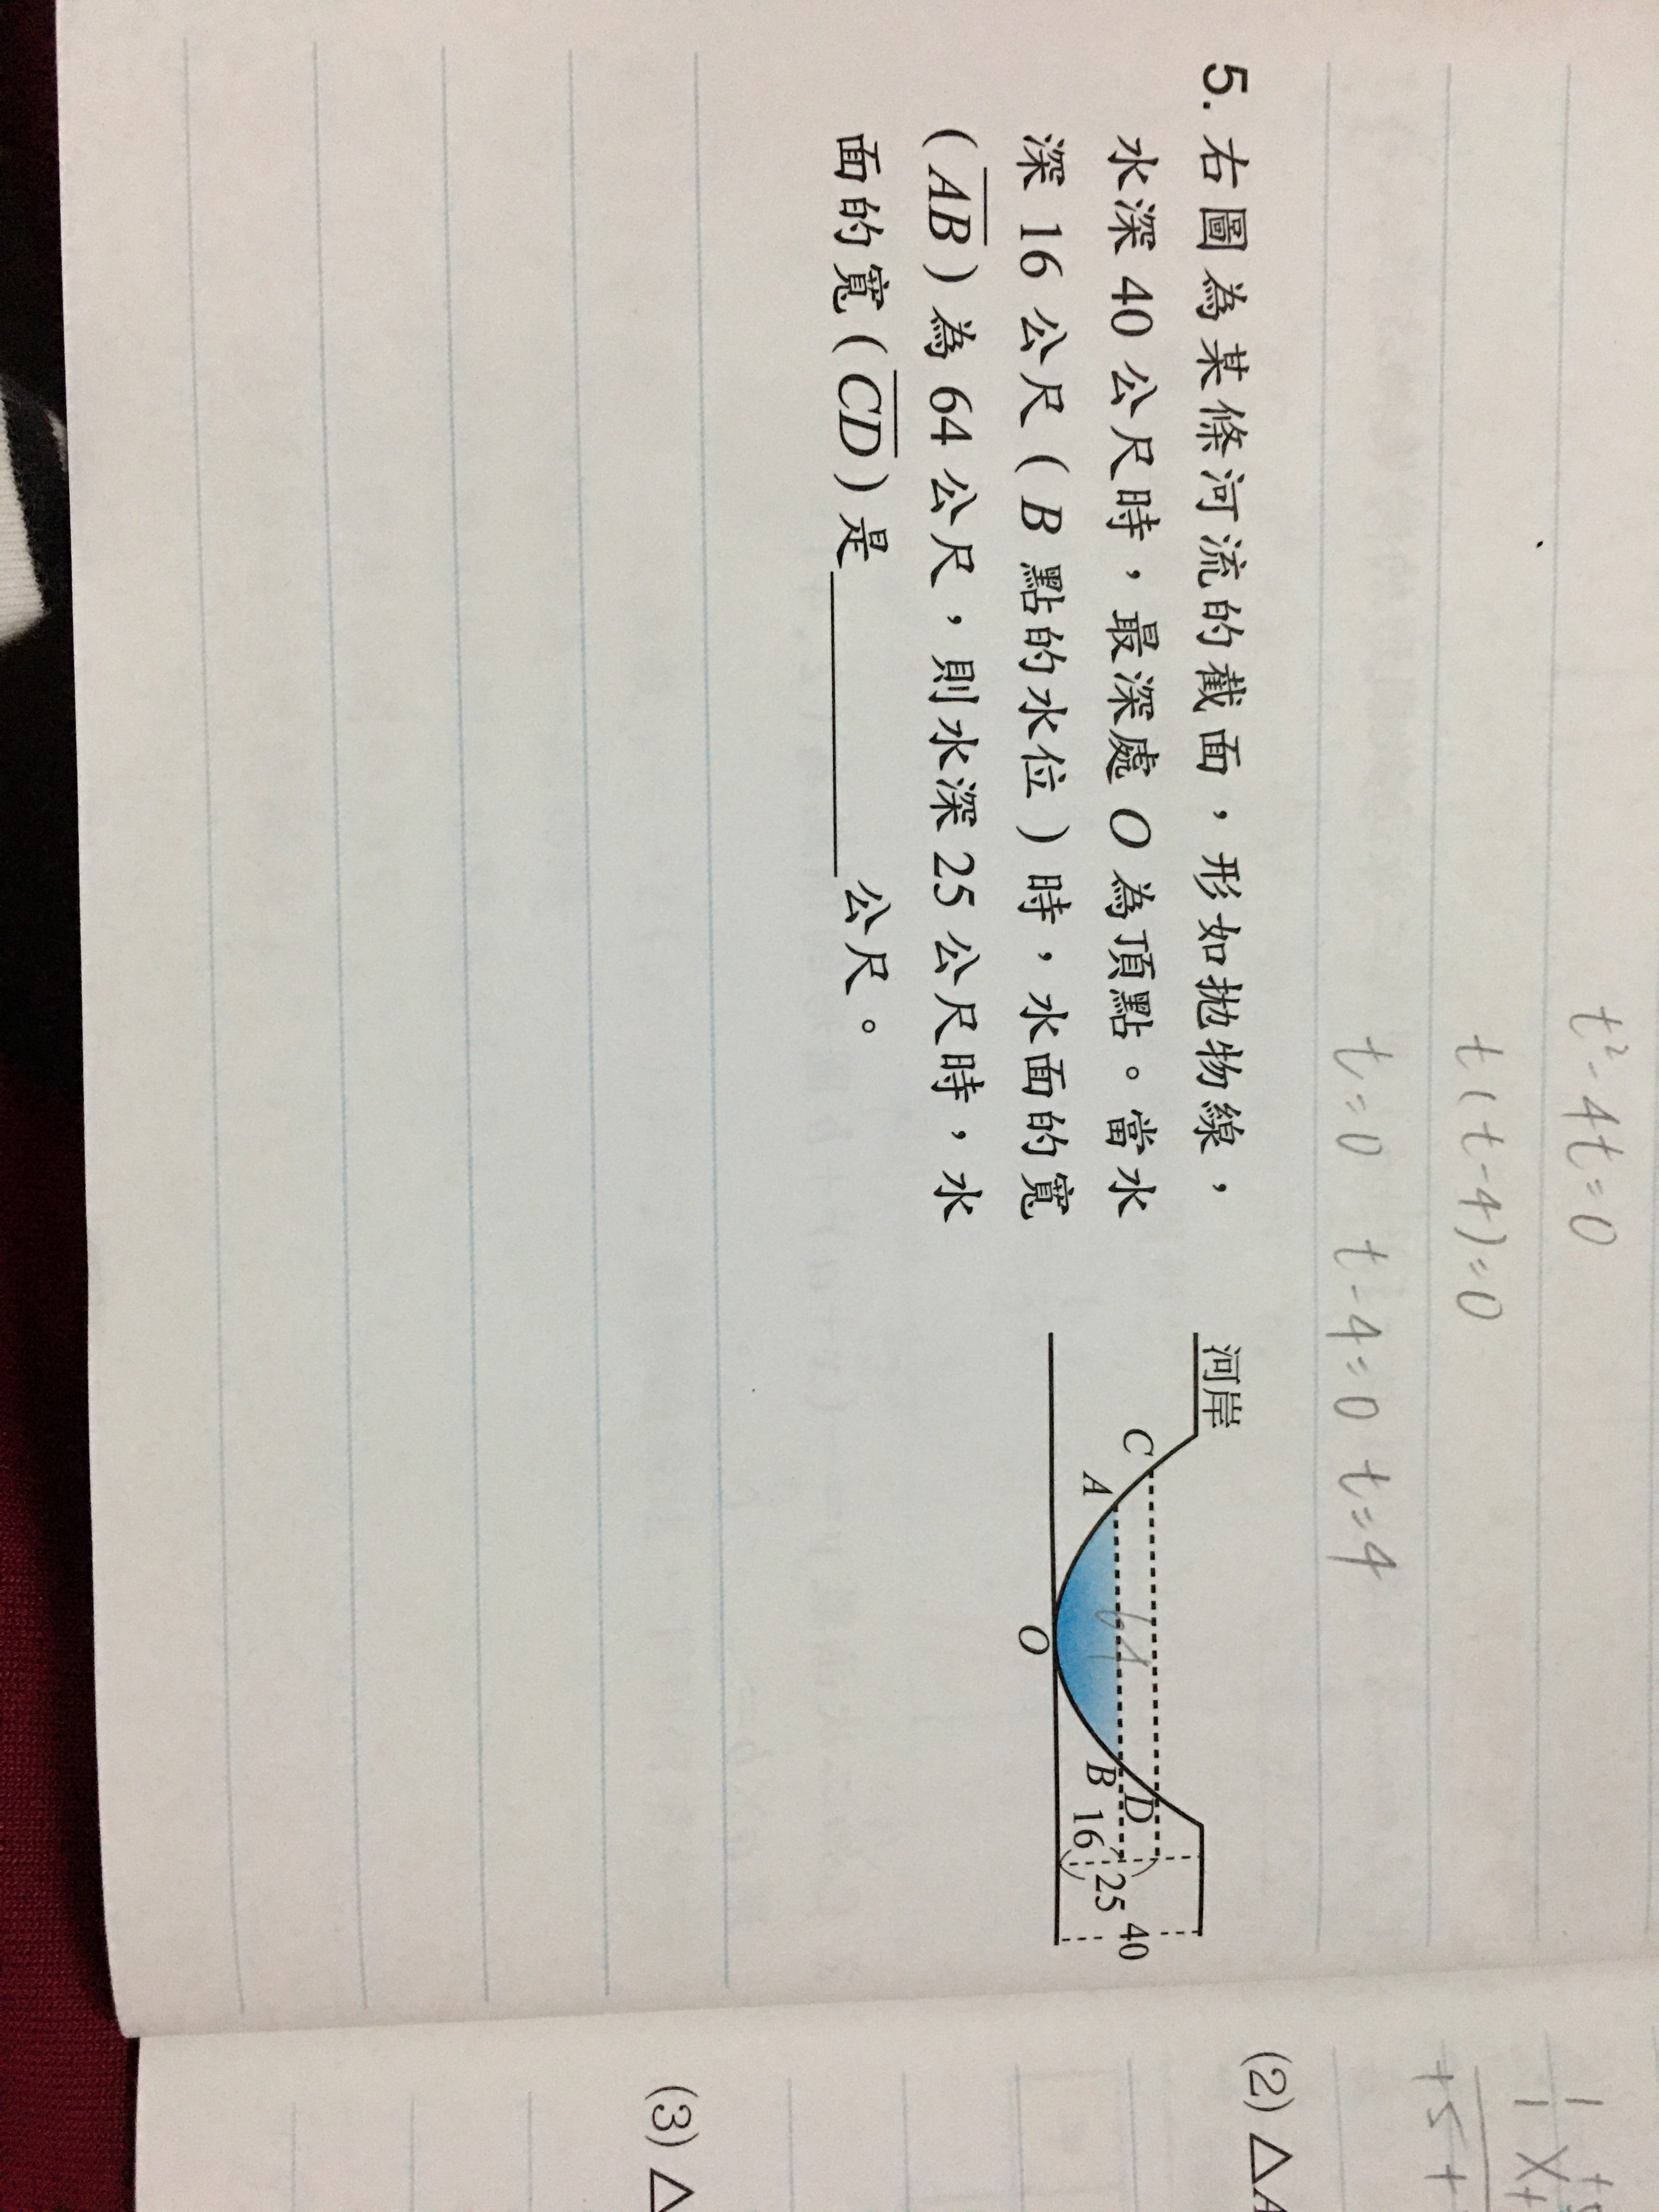 t²-4t=0
t(t-4)=0
t=0 t-4=0 t=4
5. 右圖為某條河流的截面，形如拋物線，
水深 40 公尺時，最深處 O 為頂點。當水
深 16 公尺（B 點的水位）時，水面的寬
（AB）為 64 公尺，則水深 25 公尺時，水
面的寬（CD）是＿＿＿＿＿公尺。
河岸
C
D
A
64
B
16
25
40
O
(2) △A
(3) △